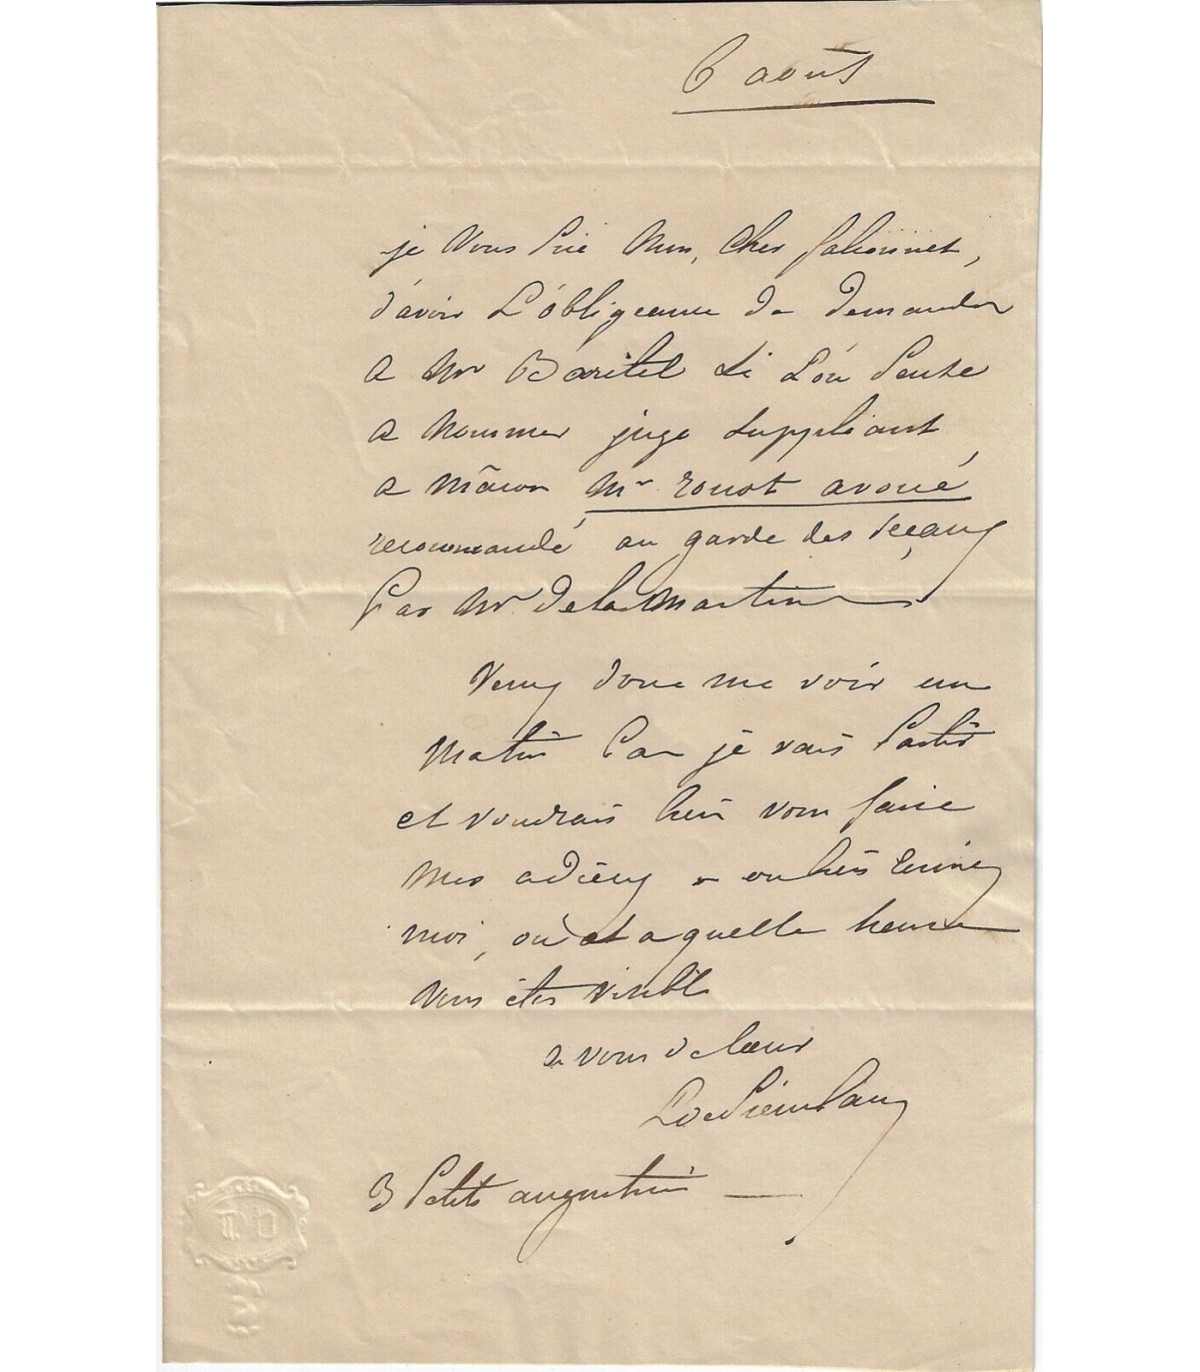 6 août
je vous prie mon, cher
d'avoir L'obligeance de demander
a Mr Baritel si L'on pense
a nommer juge suppléant
a Mâcon Mr rouot avoué
recommandé au garde des sceaux
par Mr de la Martine
venez donc me voir un
matin car je vais partir
et voudrais bien vous faire
mes adieux ou bien
moi, où et a quelle heure
vous êtes visible
a vous de coeur
L de Pierreclauz
3 petits augustins